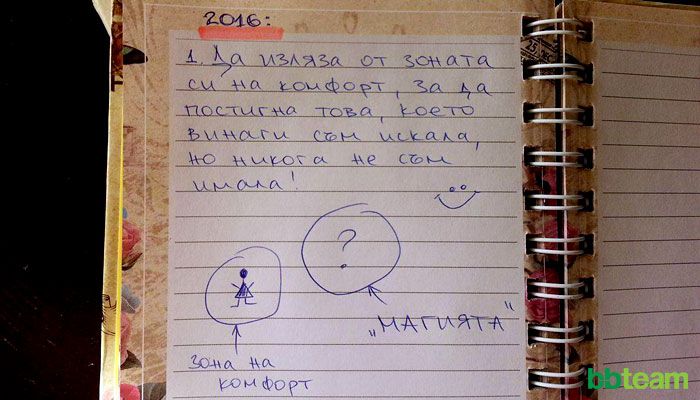 2016:
1. Да изляза от зоната
си на комфорт, за да
постигна това, което
винаги съм искала,
но никога не съм
имала!
?
„МАГИЯТА"
зона на
комфорт
bbteam